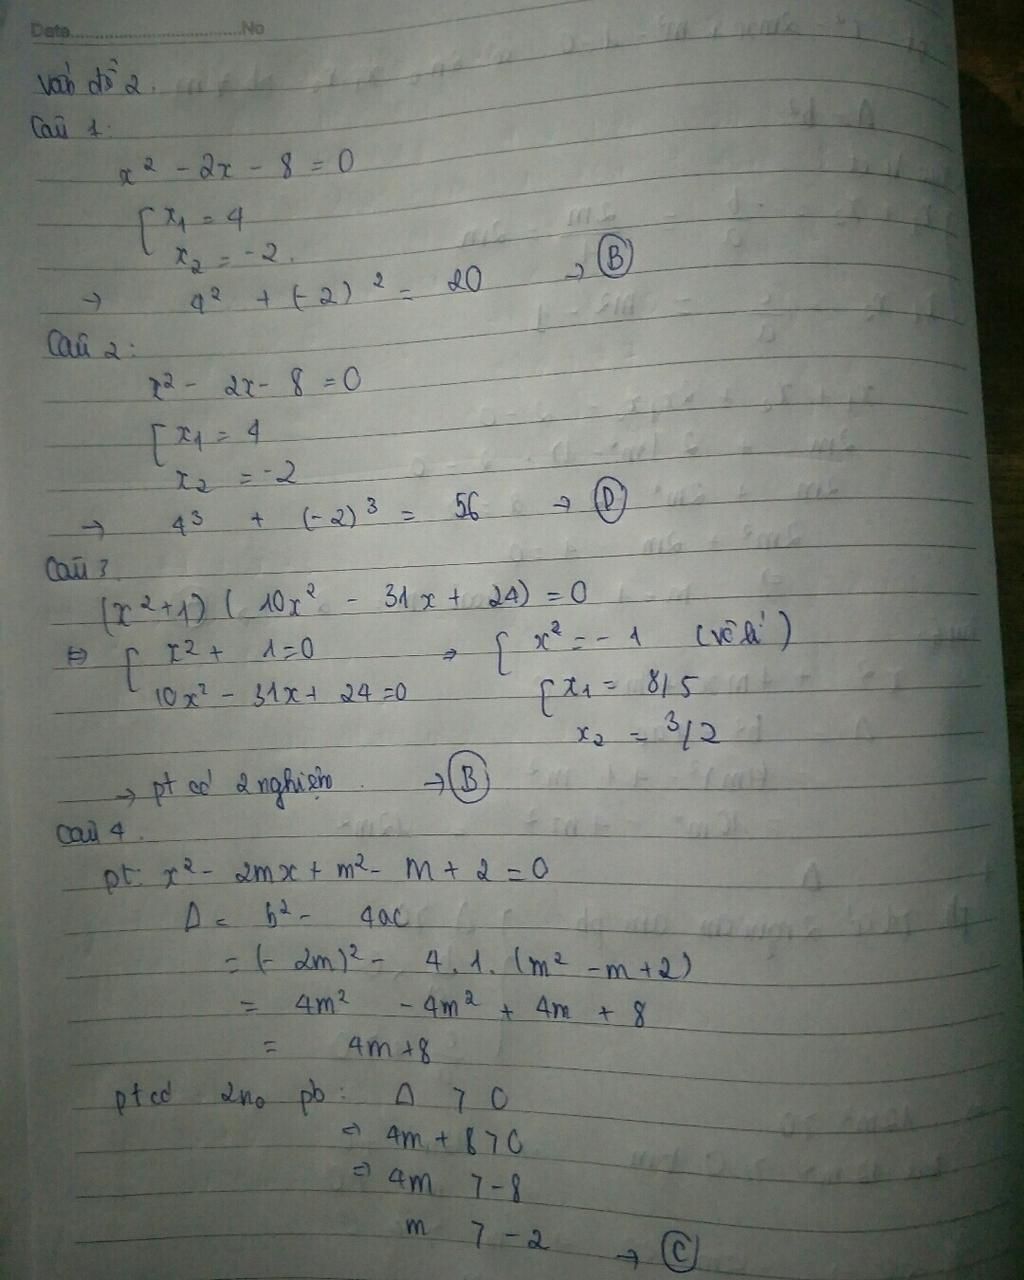 Date.....................................No
Vấn đề 2.
Câu 1:
x² - 2x - 8 = 0
{ x₁ = 4
x₂ = -2.
→ 4² + (-2)² = 20 → (B)
Câu 2:
x² - 2x - 8 = 0
{ x₁ = 4
x₂ = -2
→ 4³ + (-2)³ = 56 → (D)
Câu 3
(x²+1)( 10x² - 31x + 24) = 0
⇔ { x² + 1=0 ⇒ { x² = -1 (vô lí)
10x² - 31x + 24 =0 { x₁ = 8/5
x₂ = 3/2
→ pt có 2 nghiệm. → (B)
Câu 4.
pt: x² - 2mx + m² - m + 2 = 0
Δ = b² - 4ac
= (-2m)² - 4.1.(m² - m + 2)
= 4m² - 4m² + 4m + 8
= 4m +8
pt có 2n₀ pb: Δ > 0
⇒ 4m + 8 > 0
⇒ 4m > -8
m > -2 → (C)